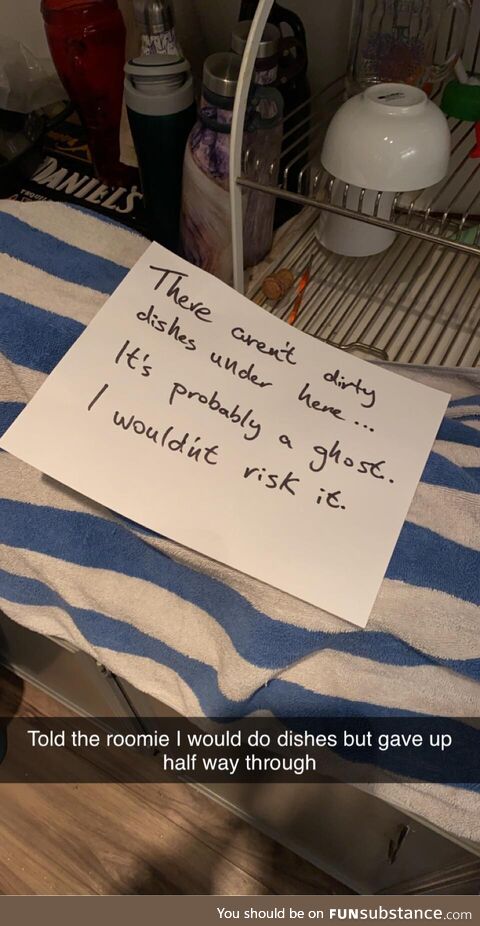 DANIEL'S
There aren't dirty
dishes under here...
It's probably a ghost.
I wouldn't risk it.
Told the roomie I would do dishes but gave up
half way through
You should be on FUNsubstance.com